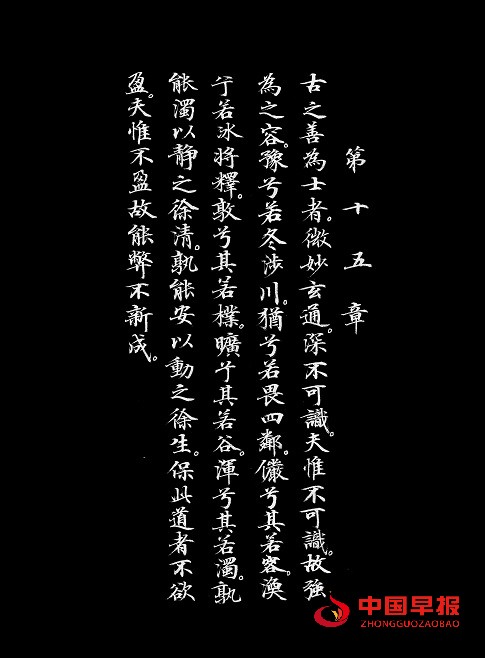 第十五章
古之善為士者。微妙玄通。深不可識。夫惟不可識。故強
為之容。豫兮若冬涉川。猶兮若畏四鄰。儼兮其若容。渙
兮若冰將釋。敦兮其若樸。曠兮其若谷。渾兮其若濁。孰
能濁以靜之徐清。孰能安以動之徐生。保此道者不欲
盈。夫惟不盈故能弊不新成。
中国早报
ZHONGGUOZAOBAO